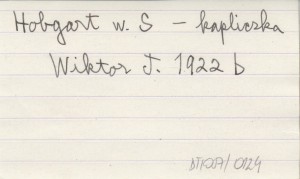 Hobgart w. S - kapliczka
Wiktor J. 1922 b
DT/207/0124